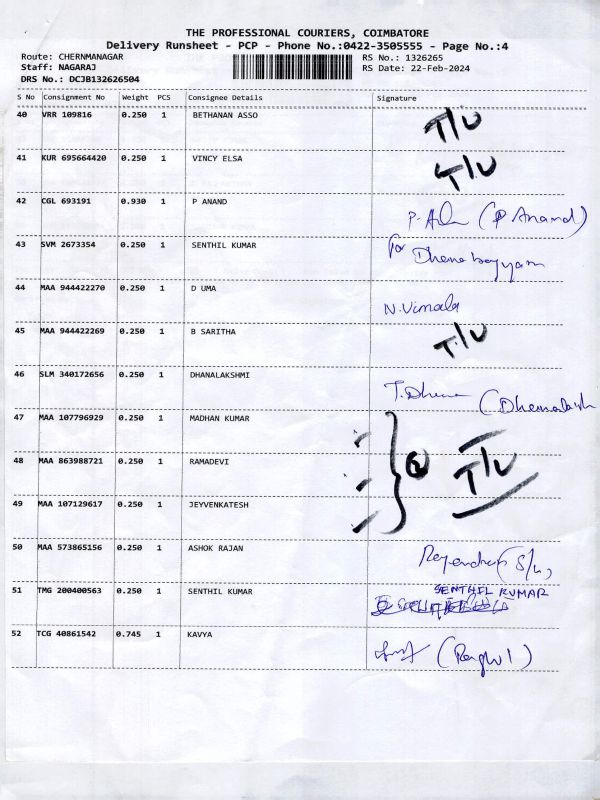 THE PROFESSIONAL COURIERS, COIMBATORE
Delivery Runsheet - PCP - Phone No.:0422-3505555 - Page No.:4
Route: CHERNMANAGAR RS No.: 1326265
Staff: NAGARAJ RS Date: 22-Feb-2024
DRS No.: DCJB132626504
S No Consignment No Weight PCS Consignee Details Signature
40 VRR 109816 0.250 1 BETHANAN ASSO T/U
41 KUR 695664420 0.250 1 VINCY ELSA T/U
42 CGL 693191 0.930 1 P ANAND (P Anand)
43 SVM 2673354 0.250 1 SENTHIL KUMAR for
44 MAA 944422270 0.250 1 D UMA N.Vimala
45 MAA 944422269 0.250 1 B SARITHA T/U
46 SLM 340172656 0.250 1 DHANALAKSHMI
47 MAA 107796929 0.250 1 MADHAN KUMAR
48 MAA 863988721 0.250 1 RAMADEVI T/U
49 MAA 107129617 0.250 1 JEYVENKATESH
50 MAA 573865156 0.250 1 ASHOK RAJAN
51 TMG 200400563 0.250 1 SENTHIL KUMAR SENTHIL KUMAR
52 TCG 40861542 0.745 1 KAVYA